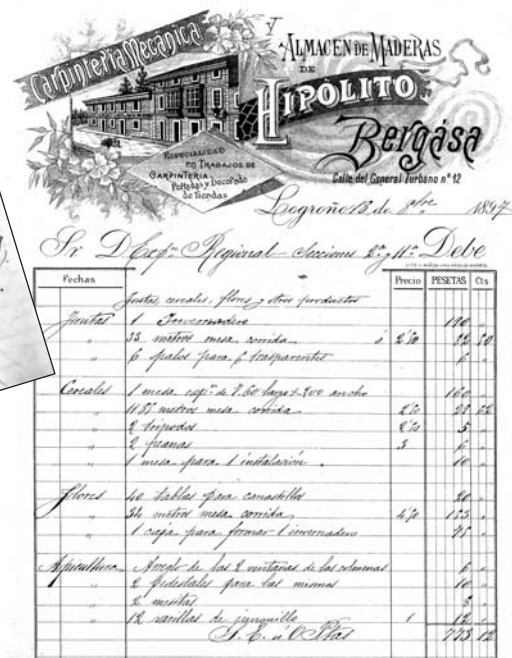 Carpintería Mecánica
Y
ALMACEN DE MADERAS
DE
HIPÓLITO
Bergásá
Calle del General Zurbano nº 12
ESPECIALIDAD
en TRABAJOS DE
CARPINTERIA
Portadas y Decorado
de Tiendas
Logroño 13 de 8bre 1897
Sr. D. Exp.ⁿ Regional Secciones 2ª y 11ª Debe
Fechas Precio PESETAS Cts
frutas, cereales, flores y otros productos
Frutas 1 Invernadero 190
" 33 metros mesa corrida á 2'50 82 50
" 6 palos para 6 trasparentes 6
Cereales 1 mesa esp.ⁿ de 8.60 largo x 2'00 ancho 160
" 11'85 metros mesa corrida 2'50 29 62
" 2 trípodes 2'50 5 "
" 2 peanas 3 6 "
" 1 mesa para 1 instalación 10 "
Flores 40 tablas para canastillos 20 "
" 34 metros mesa corrida 4'50 153 "
" 1 caja para formar 1 invernadero 75 "
Apicultura Arreglo de las 2 ventanas de las colmenas 6 "
" 2 pedestales para las mismas 10 "
" 2 mesitas 8 "
" 12 varillas de junquillo 1 12 "
S. E. ú O. Ptas 773 12